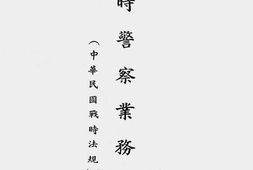 時警察業務
(中華民國戰時法規